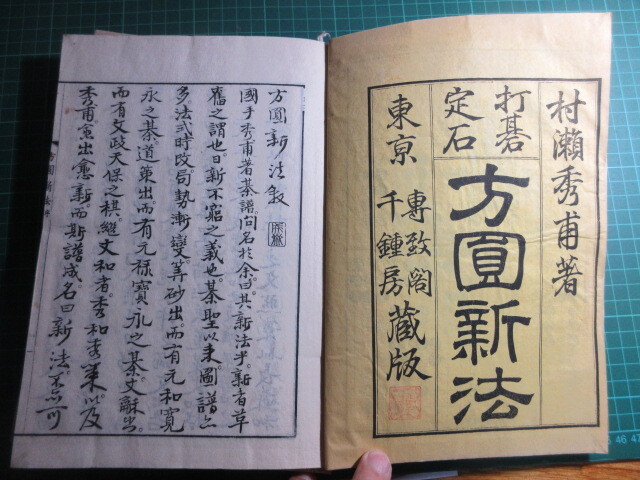 村瀨秀甫著
打碁
定石
方圓新法
東京
專致閣
千鍾房
藏版
方圓新法敍
國手秀甫著棊譜問名於余曰其新法乎新者革
舊之謂也日新不窮之義也棊聖以来圖譜亦
多法式時改局勢漸變算砂出而有元和寬
永之棊道策出而有元禄寶永之棊丈龢出
而有文政天保之棋継丈和者秀和秀策以及
秀甫愈出愈新而斯譜成名曰新法不亦可